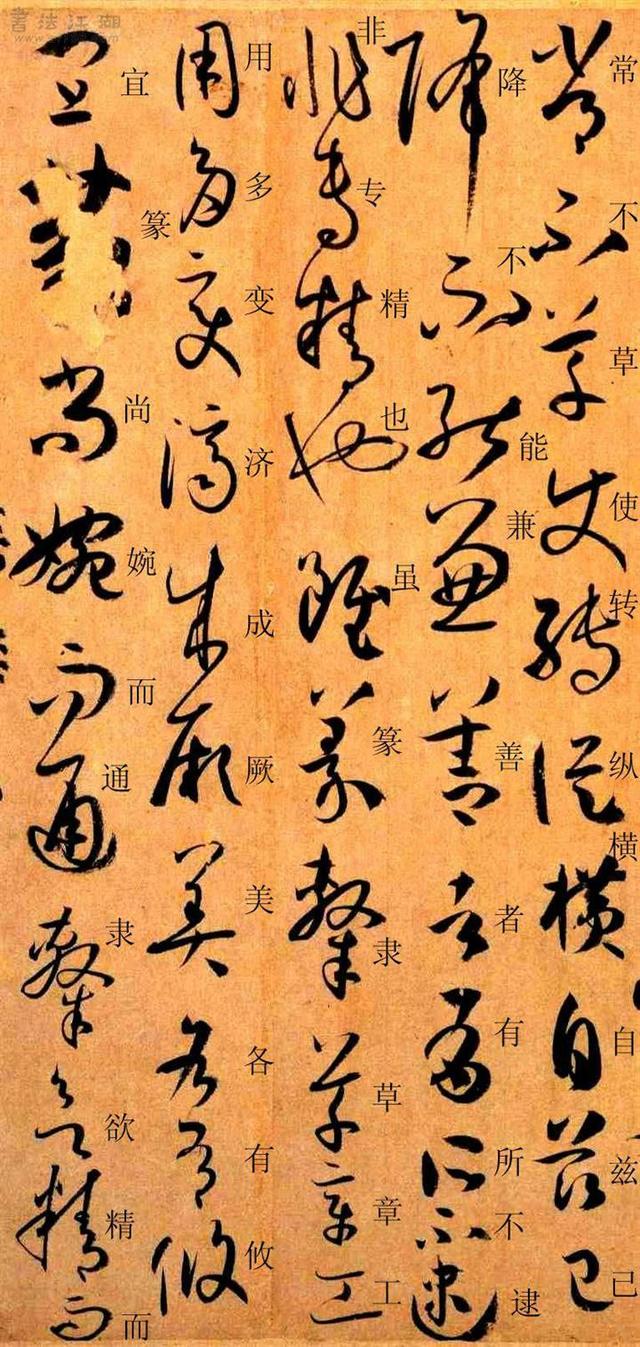 書法江湖
常不草使转纵横自兹己
降不能兼善者有所不逮
非专精也虽篆隶草章工
用多变济成厥美各有攸
宜篆尚婉而通隶欲精而